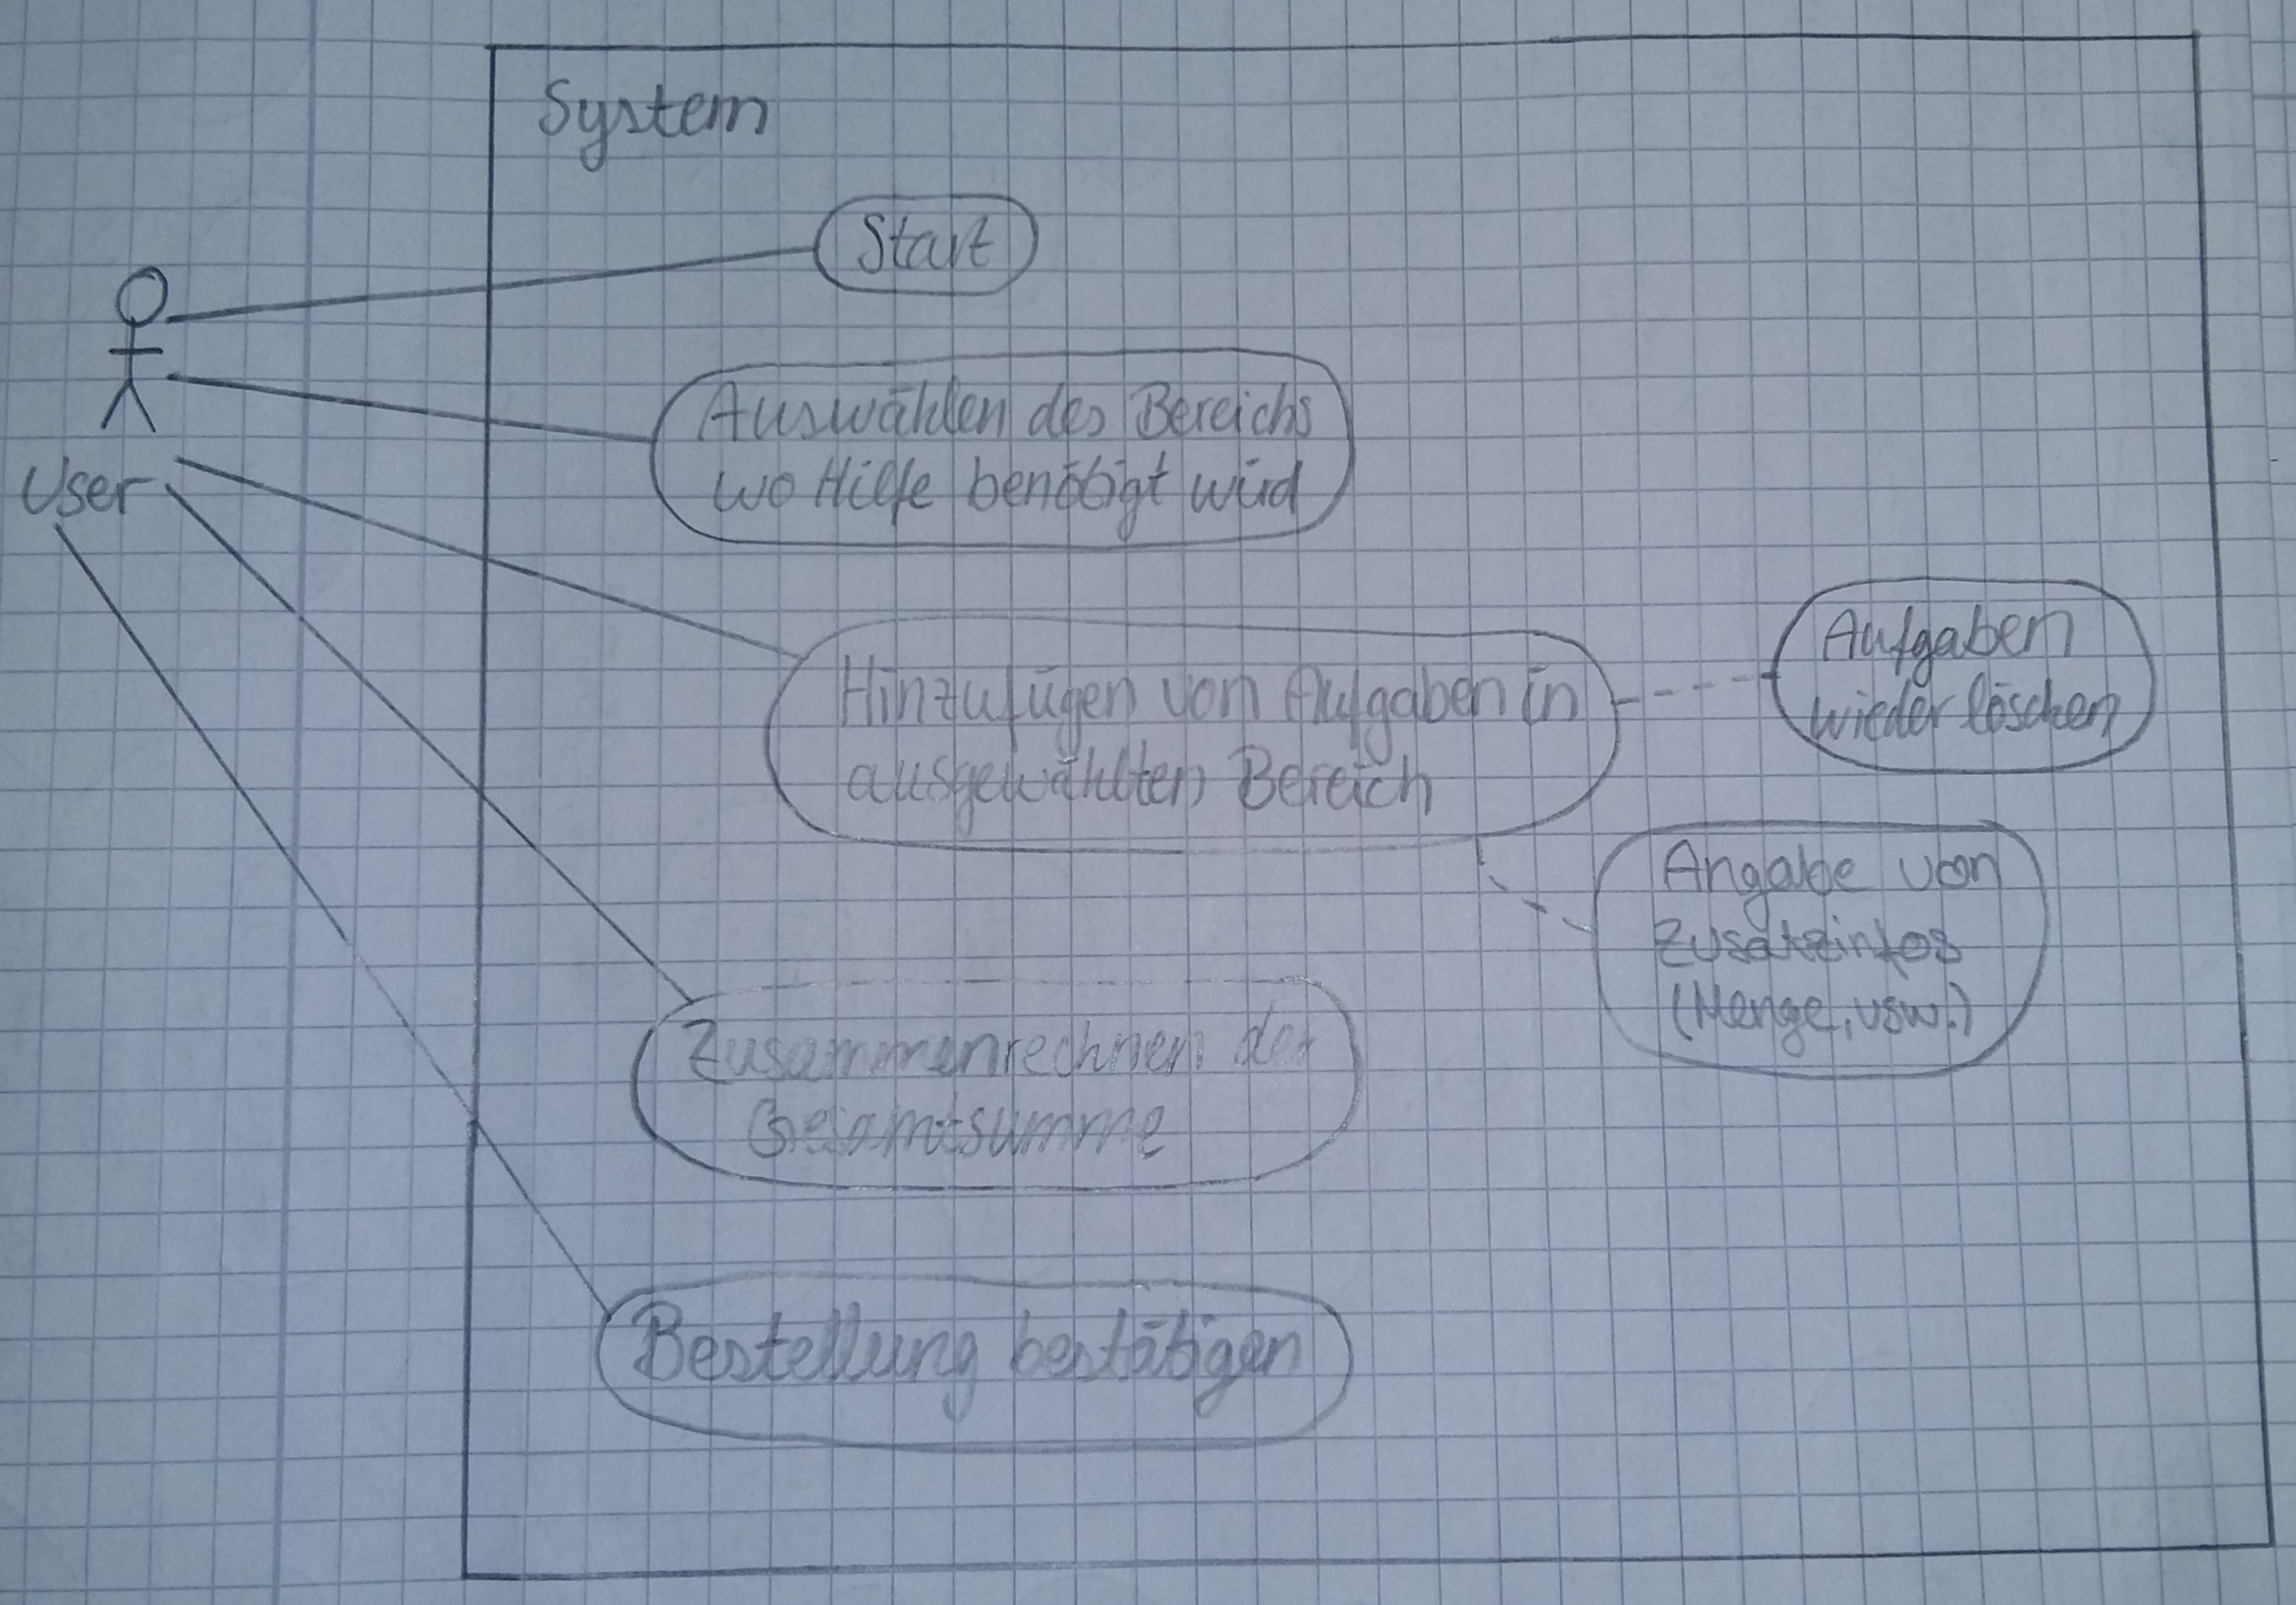 System
Start
User
Auswählen des Bereichs
wo Hilfe benötigt wird
Hinzufügen von Aufgaben in
ausgewählten Bereich
Aufgaben
wieder löschen
Angabe von
Zusatzinfos
(Menge, usw.)
Zusammenrechnen der
Gesamtsumme
Bestellung bestätigen